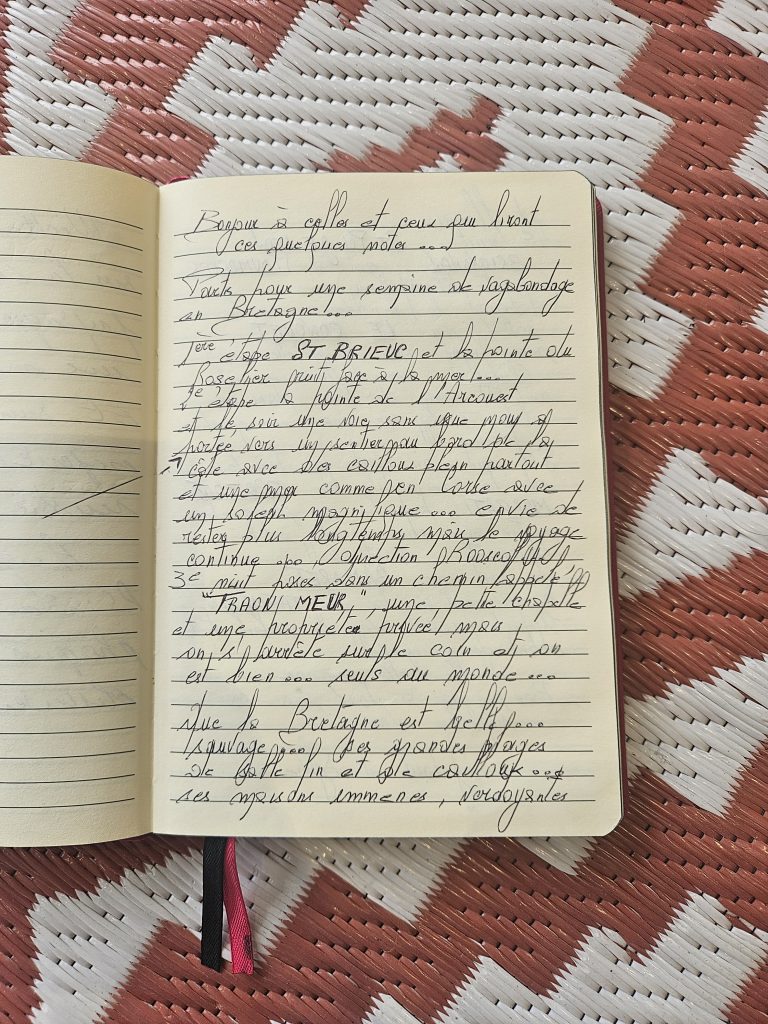 Bonjour à celles et ceux qui liront
ces quelques notes ...
Partis pour une semaine de vagabondage
en Bretagne ...
1ère étape ST BRIEUC et la pointe du
Roselier nuit face à la mer ...
2e étape la pointe de l'Arcouest
et le soir une voie sans
portée vers un sentier au bord de la
côte avec des cailloux plein partout
et une mer comme en Corse avec
un soleil magnifique ... envie de
rester plus longtemps mais le voyage
continue ... direction Roscoff
3e nuit posés dans un chemin appelé
"TRAON MEUR", une petite chapelle
et une propriété privée mais
on s'arrête sur le coin et on
est bien ... seuls au monde ...
Que la Bretagne est belle ...
sauvage ... ses grandes plages
de sable fin et de cailloux ...
ses maisons immenses, verdoyantes